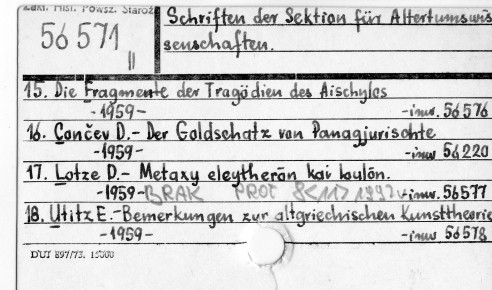 Zakł. Hist. Powsz. Staroż
56 571
II
Schriften der Sektion für Altertumswis
senschaften.
15. Die Fragmente der Tragödien des Aischylos
-1959- -inw. 56 576
16. Cončev D.- Der Goldschatz von Panagjurischte
-1959- -inw 56 220
17. Lotze D.- Metaxy eleytherōn kai doulōn.
-1959- BRAK PROT -inw. 56577
18. Utitz E.-Bemerkungen zur altgriechischen Kunsttheorie
-1959- -inw 56 578
DUJ 897/73. 15000